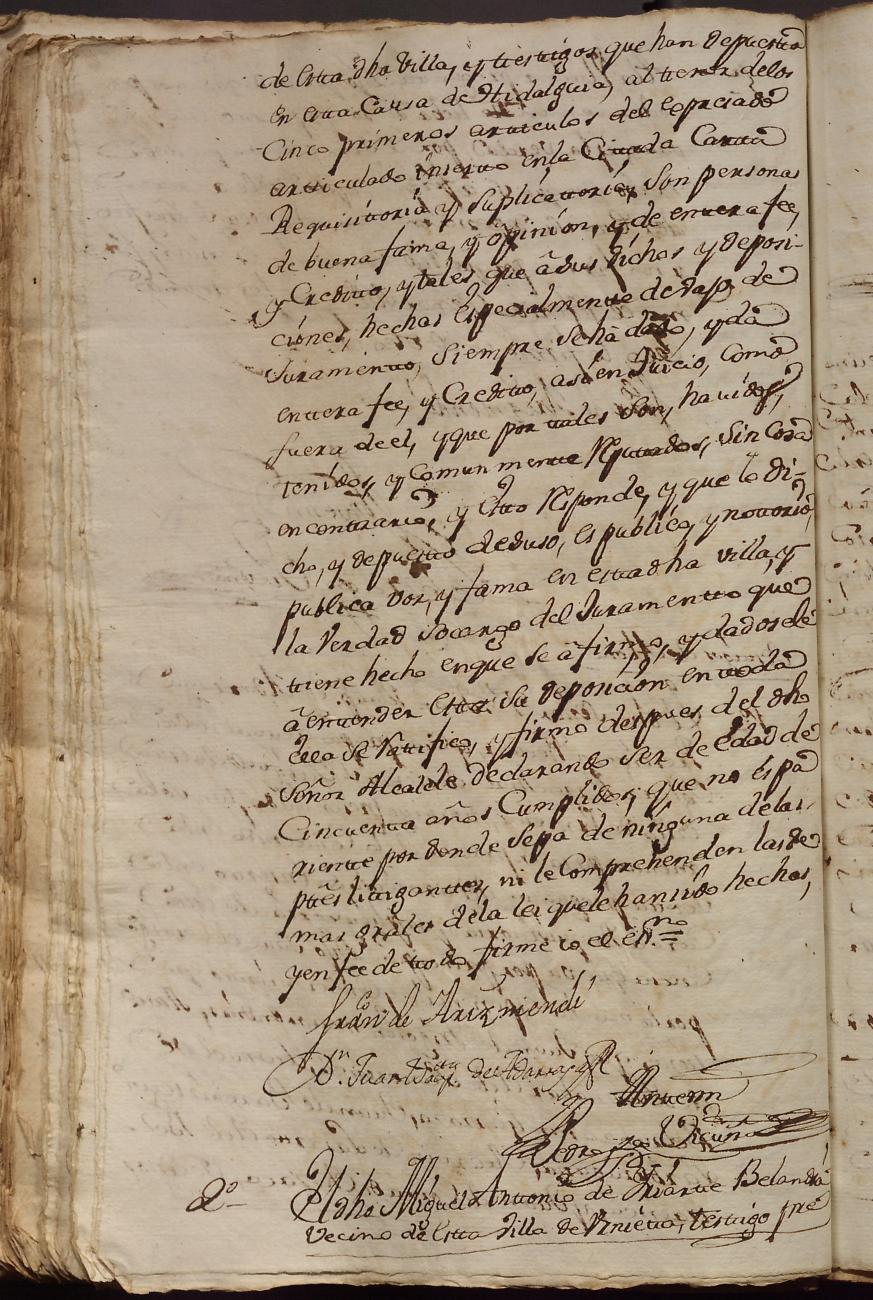 de esta dha Villa, y testigos que han depuesto
en esta Causa de Hidalguia, al tenor delos
Cinco primeros articulos del expresado
articulado inserto en la Citada Carta
Requisitoria y Suplicatoria, son personas
de buena fama, y opinion, y de entera fee,
y Credito, y tales que â sus dichos y deposi-
ciones, hechas Especialmente devajo de
Juramento, siempre se hà dado, y dà
entera fee, y Credito, asi en Juicio, como
fuera de el, y que por tales son, havidos,
tenidos, y Comun mente Reputados, sin Cosa
en contrario, y esto Responde, y que lo di-
cho, y depuesto deduso, es publico, y notorio,
publica voz, y fama en esta dha villa, y
la Verdad socargo del Juramento que
tiene hecho en que se âfirmo, y dadosele
â entender esta su deposicion en toda
ella se Ratifico, y firmo despues del dho
Señor Alcalde declarando ser de edad de
Cincuenta años Cumplidos, que no es pa
riente por donde sepa de ninguna de las
ptes litigantes, ni le Comprehenden las de
mas grales dela lei que le han sido hechas,
y en fee de todo firme io el essno =
Franco de Arizmendi
Dn. Juan
Antemi
Pedro
2o El dho Miguel Antonio de Iriarte Belandia
Vecino de esta Villa de Urnieta, testigo pre